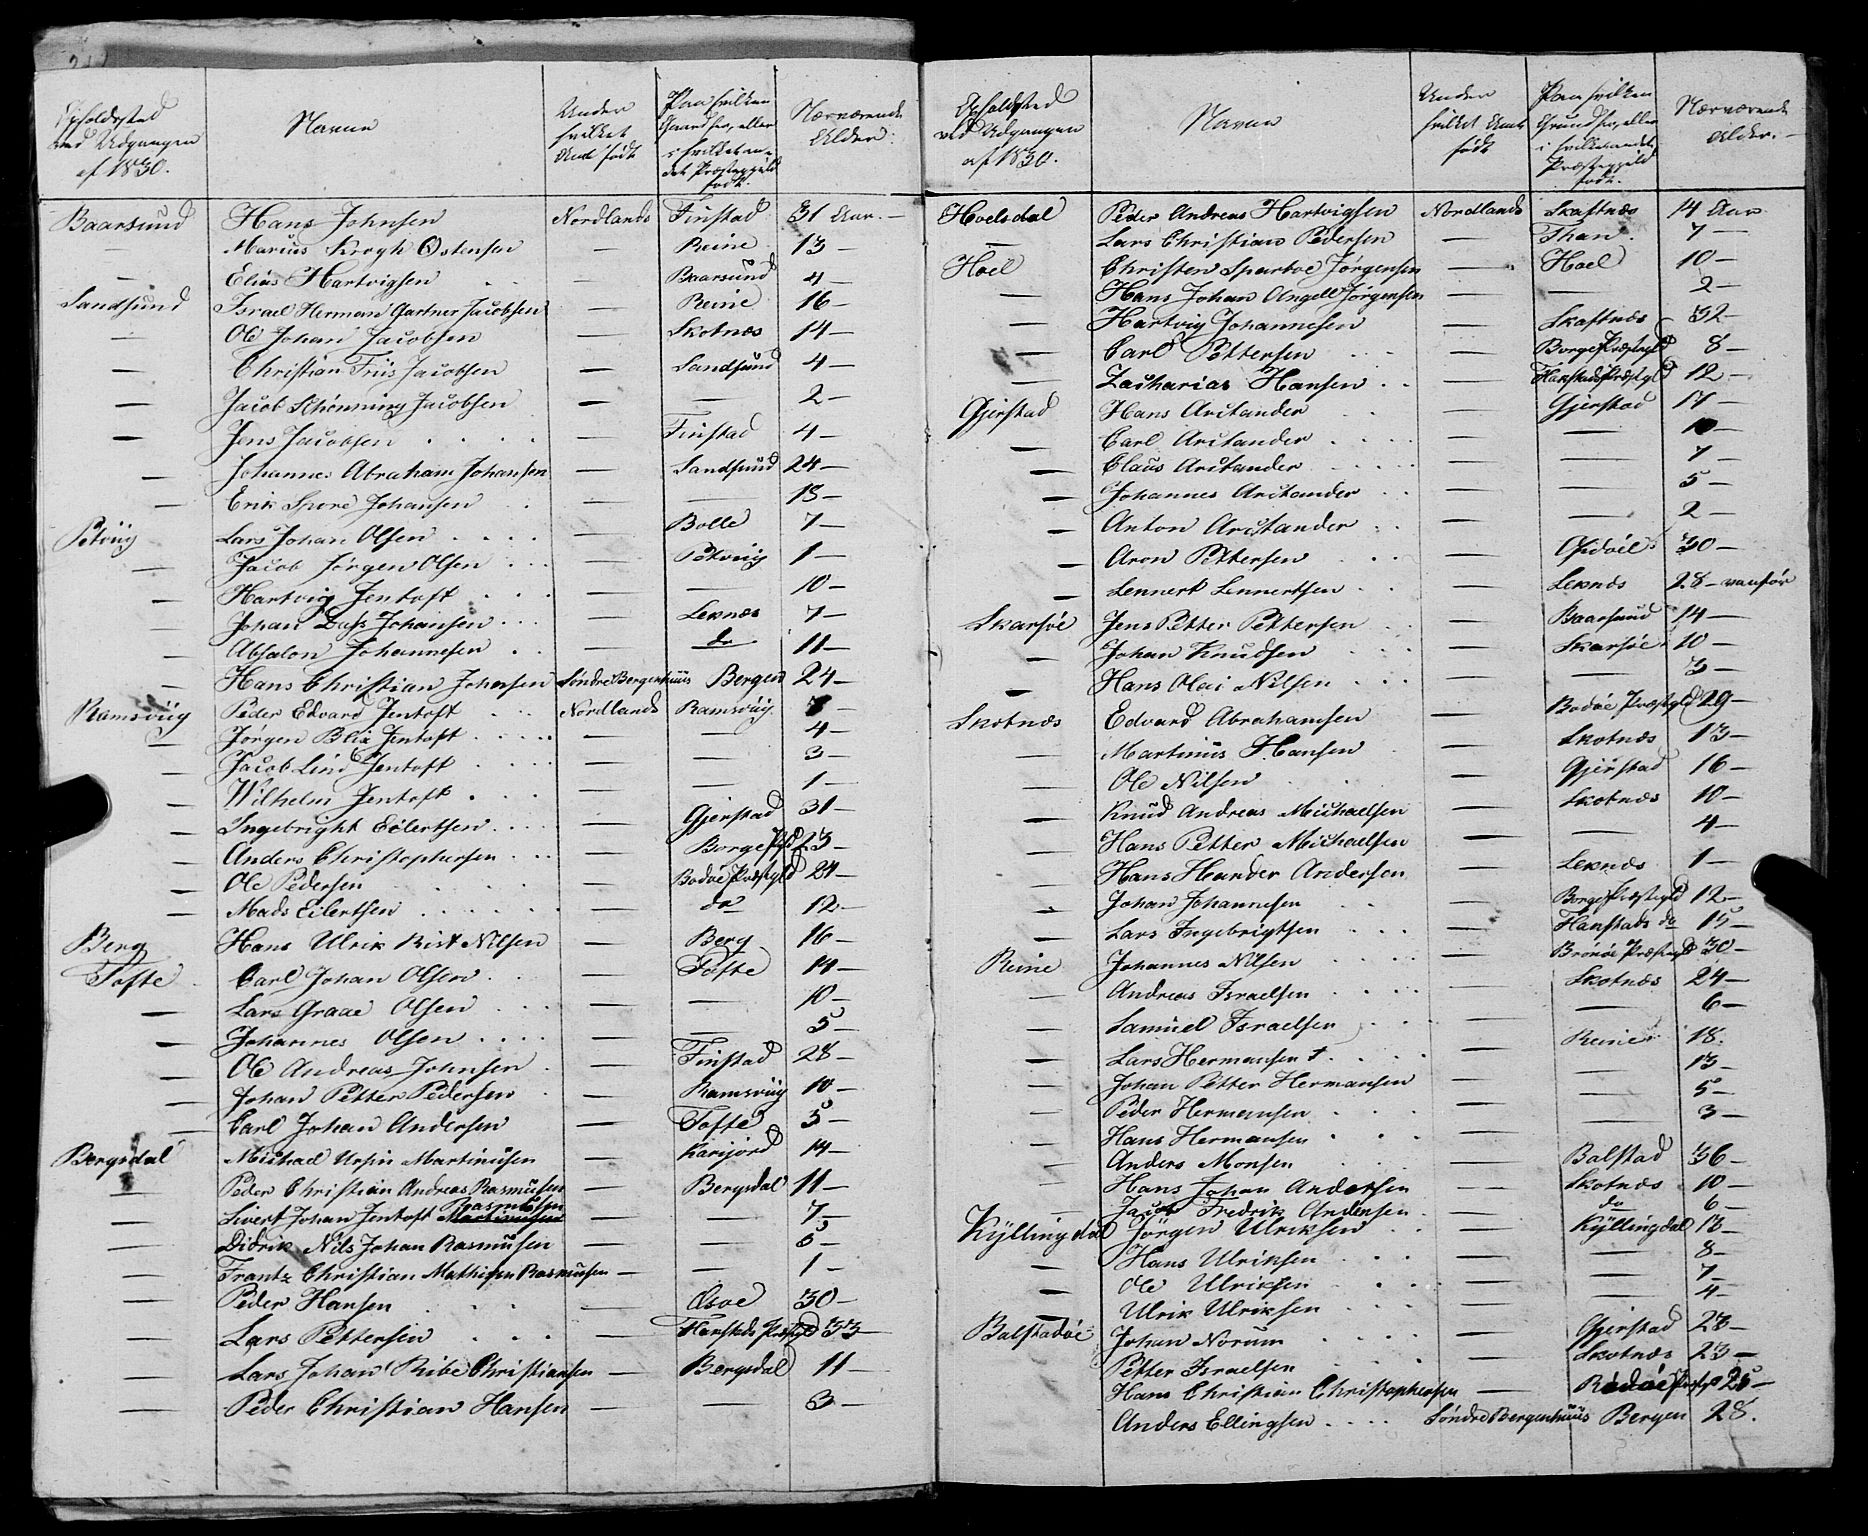 Opholdssted ved Udgangen af 1830. | Navne | Under hvilket Amt født | Paa hvilken Gaard her, eller i hvilket andet Præstegjeld født. | Nærværende Alder.
Baarsund | Hans Johnsen | Nordlands | Finstad | 31 Aar. —
— | Marius Krogh Ostensen | — | Reine | 13 —
— | Elias Hartvigsen | — | Baarsund | 4 —
Sandsund | Israel Herman Gartner Jacobsen | — | Reine | 16 —
— | Ole Johan Jacobsen | — | Skotnæs | 14 —
— | Christian Friis Jacobsen | — | Sandsund | 4 —
— | Jacob Schønning Jacobsen | — | — | 2 —
— | Jens Jacobsen | — | Finstad | 4 —
— | Johannes Abraham Johansen | — | Sandsund | 24 —
— | Erik Spore Johansen | — | — | 18 —
Petviig | Lars Johan Olsen | — | Bolle | 7 —
— | Jacob Jørgen Olsen | — | Petviig | 1 —
— | Hartvig Jentoft | — | — | 10 —
— | Johan Dass Johansen | — | Leknæs | 7 —
— | Absalon Johannesen | — | do | 11 —
— | Hans Christian Johnsen | Søndre Bergenhuus | Bergen | 24 —
Ramsviig | Peder Edvard Jentoft | Nordlands | Ramsviig | 7 —
— | Jørgen Blix Jentoft | — | — | 4 —
— | Jacob Lind Jentoft | — | — | 3 —
— | Wilhelm Jentoft | — | — | 1 —
— | Ingebright Eilertsen | — | Gjerstad | 31 —
— | Anders Christophersen | — | Borge Pgd | 23 —
— | Ole Pedersen | — | Bodøe Præstgld | 24 —
— | Mads Eilertsen | — | do | 12 —
Berg | Hans Ulrik Rist Nilsen | — | Berg | 16 —
Tofte | Carl Johan Olsen | — | Tofte | 14 —
— | Lars Graae Olsen | — | — | 10 —
— | Johannes Olsen | — | — | 5 —
— | Ole Andreas Johnsen | — | Finstad | 28 —
— | Johan Petter Pedersen | — | Ramsviig | 10 —
— | Carl Johan Andersen | — | Tofte | 5 —
Bergsdal | Michael Ursin Martinusen | — | Karijord | 14 —
— | Peder Christian Andreas Rasmusen | — | Bergsdal | 11 —
— | Sivert Johan Jentoft Martinusen Rasmusen | — | — | 7 —
— | Didrik Nils Johan Rasmusen | — | — | 5 —
— | Frantz Christian Mathisen Rasmusen | — | — | 1 —
— | Peder Hansen | — | Æsøe | 30 —
— | Lars Pettersen | — | Hanstads Præstgld | 33 —
— | Lars Johan Ribe Christiansen | — | Bergsdal | 11 —
— | Peder Christian Hansen | — | — | 3 —
Opholdsted ved Udgangen af 1830. | Navne | Under hvilket Amt født | Paa hvilken Grund her, eller i hvilket andet Præstegjeld født. | Nærværende Alder. —
Hoelsdal | Peder Andreas Hartvigsen | Nordlands | Skaftnæs | 14 Aar.
— | Lars Christian Pedersen | — | Than | 7 —
Hoel | Christen Sparboe Jørgensen | — | Hoel | 10 —
— | Hans Johan Angell Jørgensen | — | — | 2 —
— | Hartvig Johannesen | — | Skaftnæs | 32 —
— | Carl Pettersen | — | Borge Præstegld | 8 —
— | Zacharias Hansen | — | Hanstads Præstgld | 12 —
Gjerstad | Hans Arctander | — | Gjerstad | 17 —
— | Carl Arctander | — | — | 10 —
— | Claus Arctander | — | — | 7 —
— | Johannes Arctander | — | — | 5 —
— | Anton Arctander | — | — | 2 —
— | Aron Pettersen | — | Ofdøl | 30 —
— | Lennert Lennertsen | — | Leknæs | 28 — vanfør
Skarsøe | Jens Petter Pettersen | — | Baarsund | 14 —
— | Johan Knudsen | — | Skarsøe | 10 —
— | Hans Olai Nilsen | — | — | 3 —
Skotnæs | Edvard Abrahamsen | — | Bodøe Præstgld | 29 —
— | Martinus Hansen | — | Skotnæs | 13 —
— | Ole Nilsen | — | Gjerstad | 16 —
— | Knud Andreas Michaelsen | — | Skotnæs | 10 —
— | Hans Petter Michaelsen | — | — | 4 —
— | Hans Hunder Andersen | — | Leknæs | 1 —
— | Johan Johannesen | — | Borge Præstegld | 12 —
— | Lars Ingebrigtsen | — | Hanstads do | 15 —
Reine | Johannes Nilsen | — | Brønøe Præstegld | 30 —
— | Andreas Israelsen | — | Skotnæs | 24 —
— | Samuel Israelsen | — | — | 6 —
— | Lars Hermansen † | — | Reine | 18.
— | Johan Petter Hermansen | — | — | 13 —
— | Peder Hermansen | — | — | 5 —
— | Hans Hermansen | — | — | 3 —
— | Anders Monsen | — | Balstad | 36 —
— | Hans Johan Andersen | — | Skotnæs | 10 —
— | Jacob Fredrik Andersen | — | do | 6 —
Kyllingdal | Jørgen Ulriksen | — | Kyllingdal | 13 —
— | Hans Ulriksen | — | — | 8 —
— | Ole Ulriksen | — | — | 7 —
— | Ulrik Ulriksen | — | — | 4 —
Balstadøe | Johan Norum | — | Gjerstad | 23 —
— | Petter Israelsen | — | Skotnæs | 23 —
— | Hans Christian Christophersen | — | Rødøe Præstgd | 25 —
— | Anders Ellingsen | Søndre Bergenhuus | Bergen | 28.